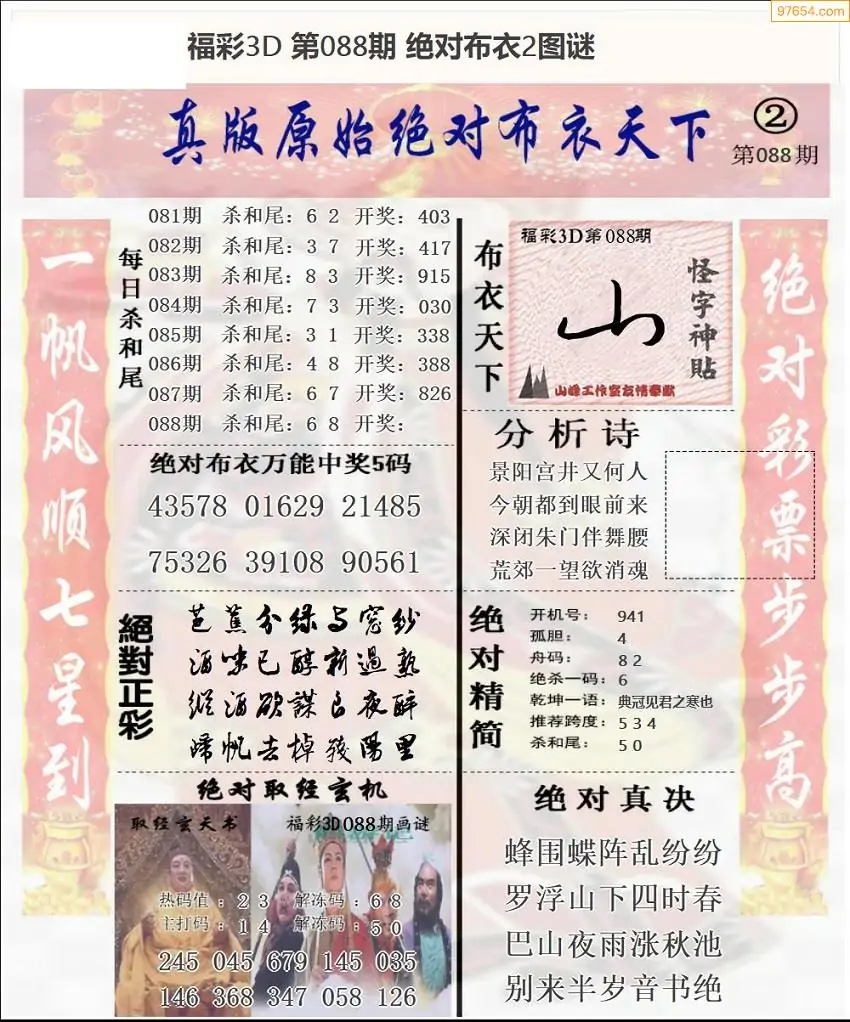 97654.com
福彩3D 第088期 绝对布衣2图谜
真版原始绝对布衣天下
②
第088期
一帆风顺七星到
每日杀和尾
081期 杀和尾：6 2 开奖：403
082期 杀和尾：3 7 开奖：417
083期 杀和尾：8 3 开奖：915
084期 杀和尾：7 3 开奖：030
085期 杀和尾：3 1 开奖：338
086期 杀和尾：4 8 开奖：388
087期 杀和尾：6 7 开奖：826
088期 杀和尾：6 8 开奖：
绝对布衣万能中奖5码
43578 01629 21485
75326 39108 90561
絕對正彩
芭蕉分绿与窓纱
酒味已醇新過熟
縱酒欲謀良夜醉
歸帆去棹殘陽里
绝对取经玄机
取经玄天书
福彩3D088期画谜
热码值：2 3 解冻码：6 8
主打码：1 4 解冻码：5 0
245 045 679 145 035
146 368 347 058 126
布衣天下
福彩3D第088期
山
怪字神贴
山峰工作室友情奉献
分析诗
景阳宫井又何人
今朝都到眼前来
深闭朱门伴舞腰
荒郊一望欲消魂
绝对精简
开机号：941
孤胆：4
舟码：8 2
绝杀一码：6
乾坤一语：典冠见君之寒也
推荐跨度：5 3 4
杀和尾：5 0
绝对真决
蜂围蝶阵乱纷纷
罗浮山下四时春
巴山夜雨涨秋池
别来半岁音书绝
绝对彩票步步高